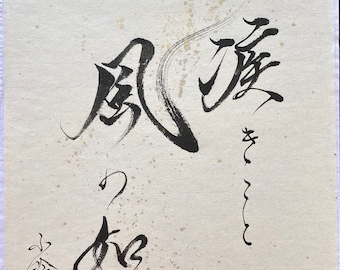 疾きこと
風の如